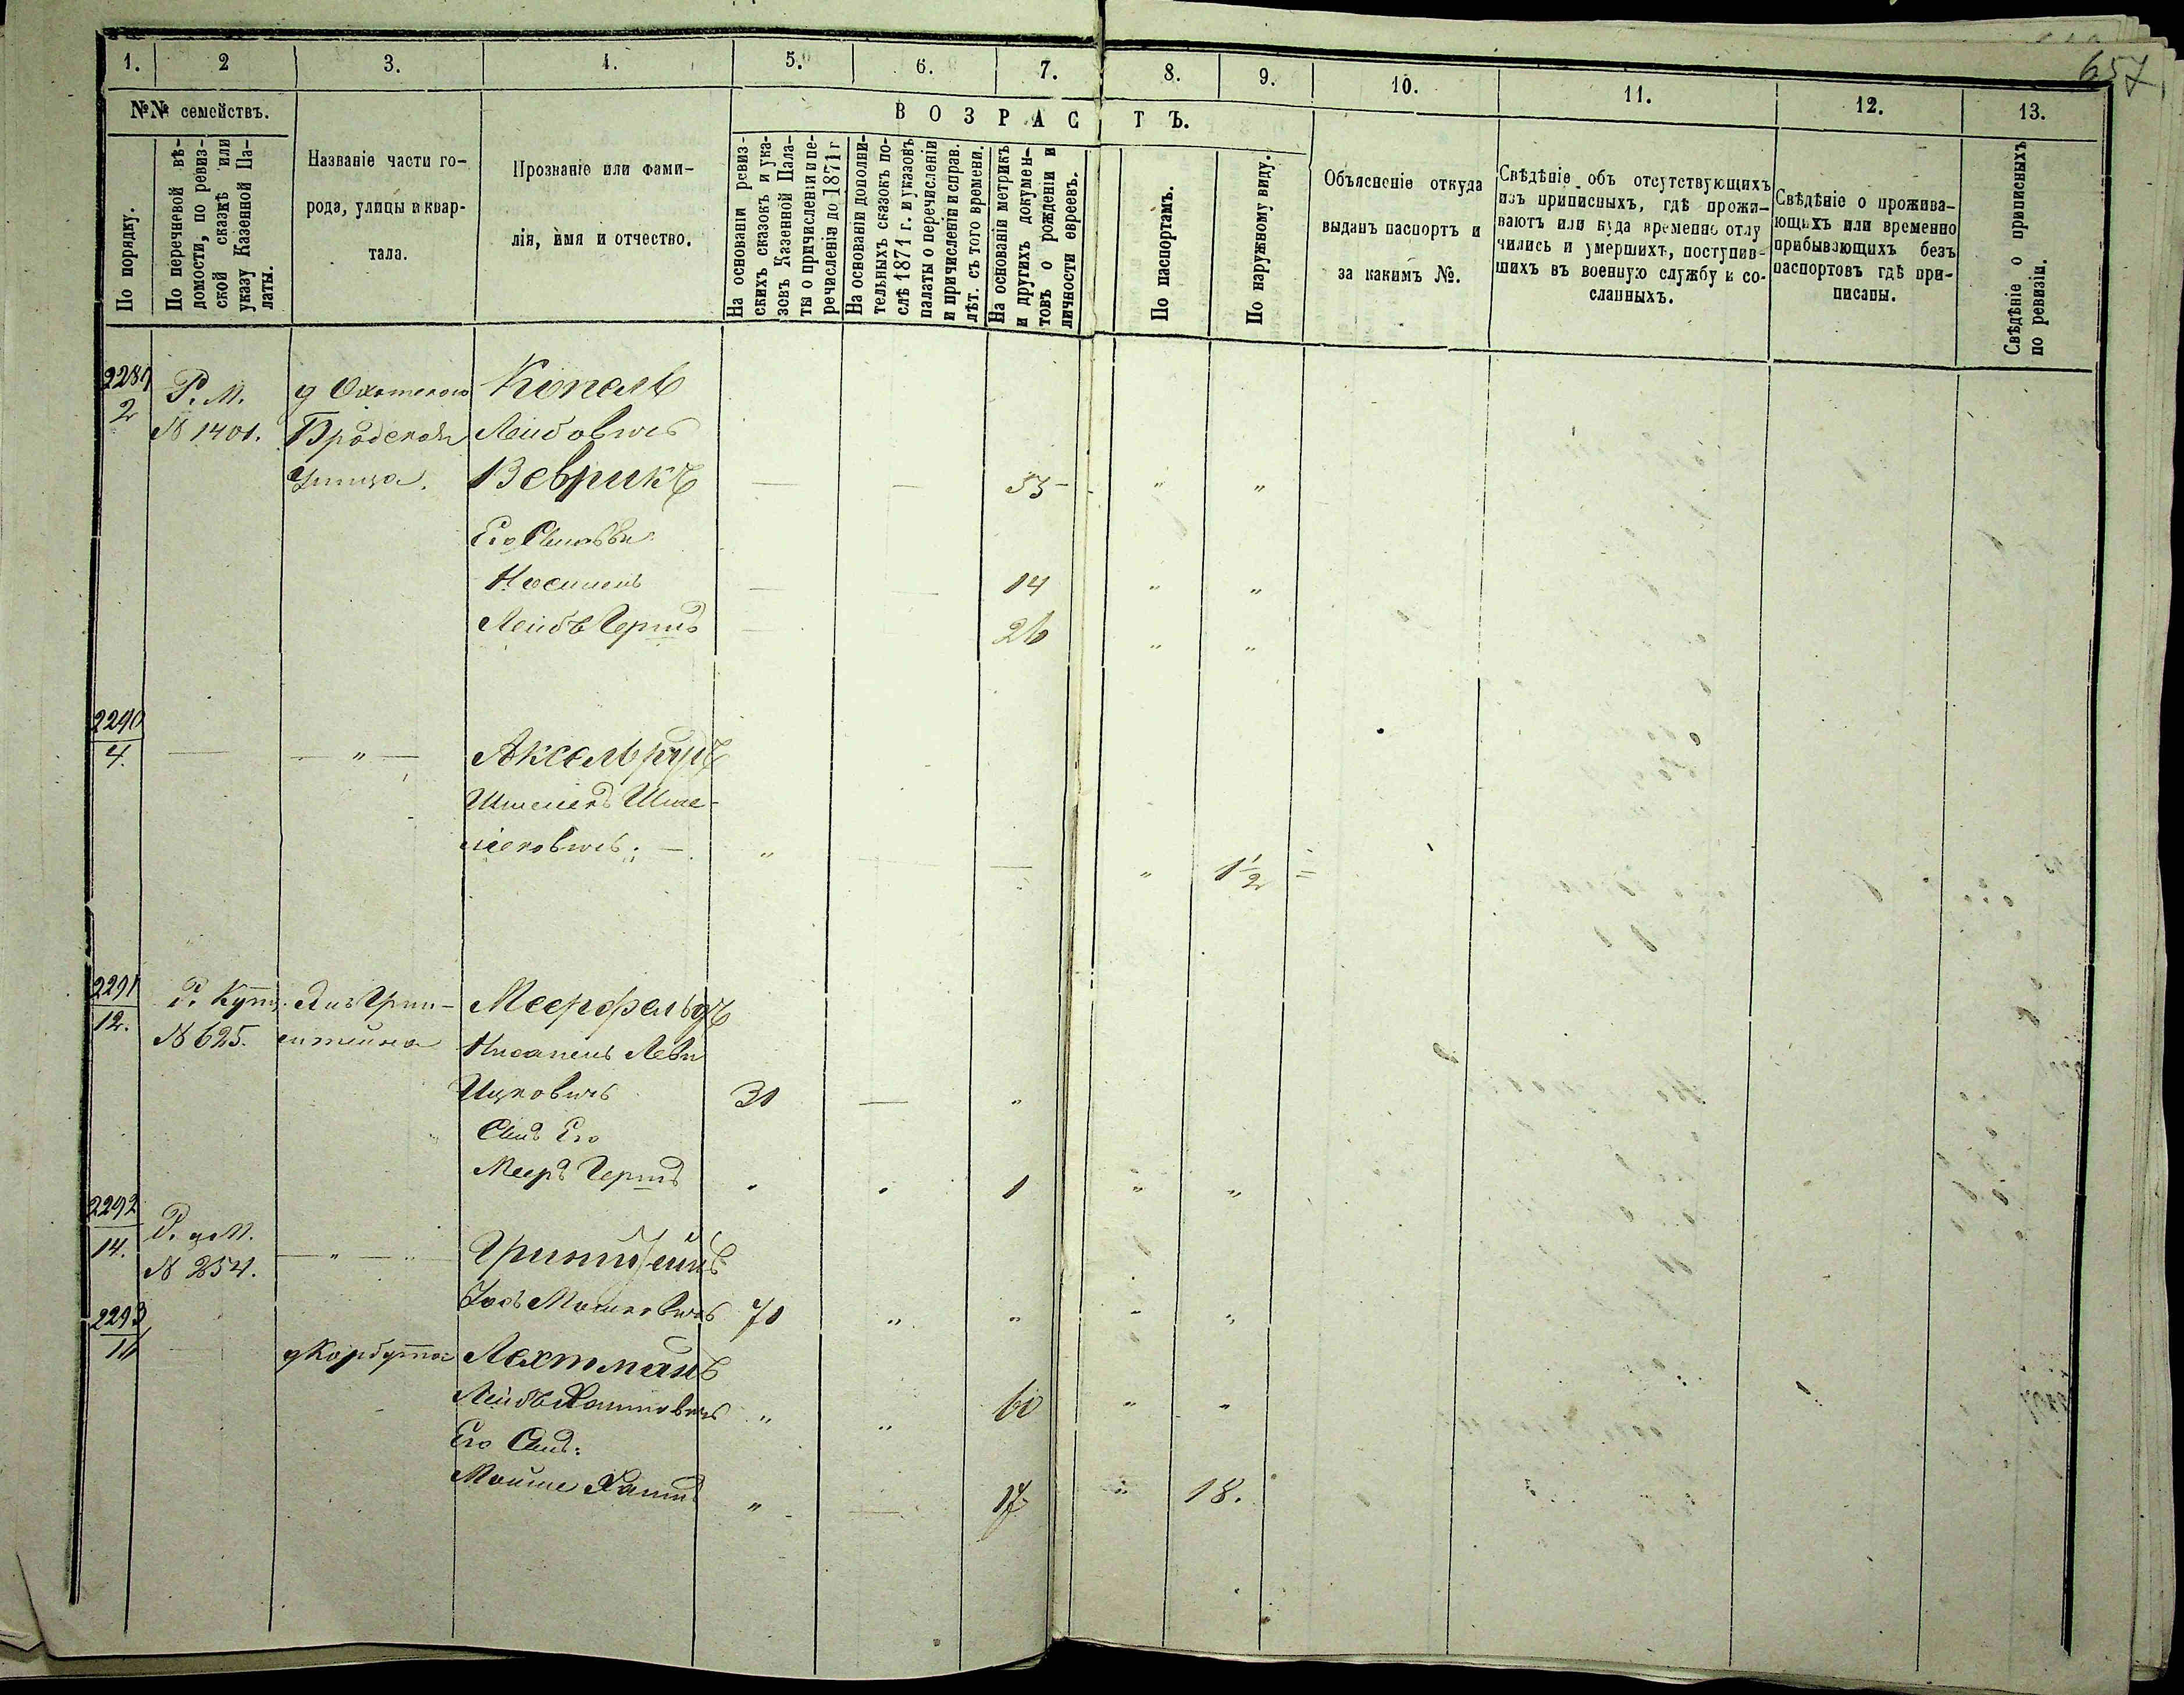 657
1. 2 3. 4. 5. 6. 7. 8. 9. 10. 11. 12. 13.
№№ семействъ.
По порядку.
По перечневой вѣ-
домости, по ревиз-
ской сказкѣ или
указу Казенной Па-
латы.
Названіе части го-
рода, улицы и квар-
тала.
Прозваніе или фами-
лія, имя и отчество.
ВОЗРАСТЪ.
На основаніи ревиз-
скихъ сказокъ и ука-
зовъ Казенной Пала-
ты о причисленіи и пе-
речисленіи до 1871 г
На основаніи дополни-
тельныхъ сказокъ по-
слѣ 1871 г. и указовъ
палаты о перечисленіи
и причисленіи и справ.
лѣт. съ того времени.
На основаніи метрикъ
и другихъ докумен-
товъ о рожденіи и
личности евреевъ.
По паспортамъ.
По наружному виду.
Объясненіе откуда
выданъ паспортъ и
за какимъ №.
Свѣдѣніе объ отсутствующихъ
изъ приписныхъ, гдѣ прожи-
ваютъ или куда временно отлу
чились и умершихъ, поступив-
шихъ въ военную службу и со-
сланныхъ.
Свѣдѣніе о прожива-
ющихъ или временно
прибывающихъ безъ
паспортовъ гдѣ при-
писаны.
Свѣдѣніе о приписныхъ
по ревизіи.
2289 Р. М. д Копель
2 № 1401. Бродская Лейбовичъ
Улица. — — 53 - " "
Его Сыновья
— — 14 " "
Лейбъ Гершъ — 26 " "
2290
4. — — " — Аксельрудъ
Шмелекъ Шме-
лековичъ. — " — — " 1 1/2 =
2291 Р. Куп. Меерфельдъ
12. № 625. Леви
Ицковичъ 31 — "
Сынъ Его
Мееръ Гершъ " " 1 " "
2292 Р. М.
14. № 254. — " — Гринштейнъ
Мошковичъ 71 " " " "
2293
— д Корбута Лехтманъ
Лейбъ Хаимовичъ " " 60 " "
Его Сынъ:
Мойше Хаимъ " — 17 " 18.